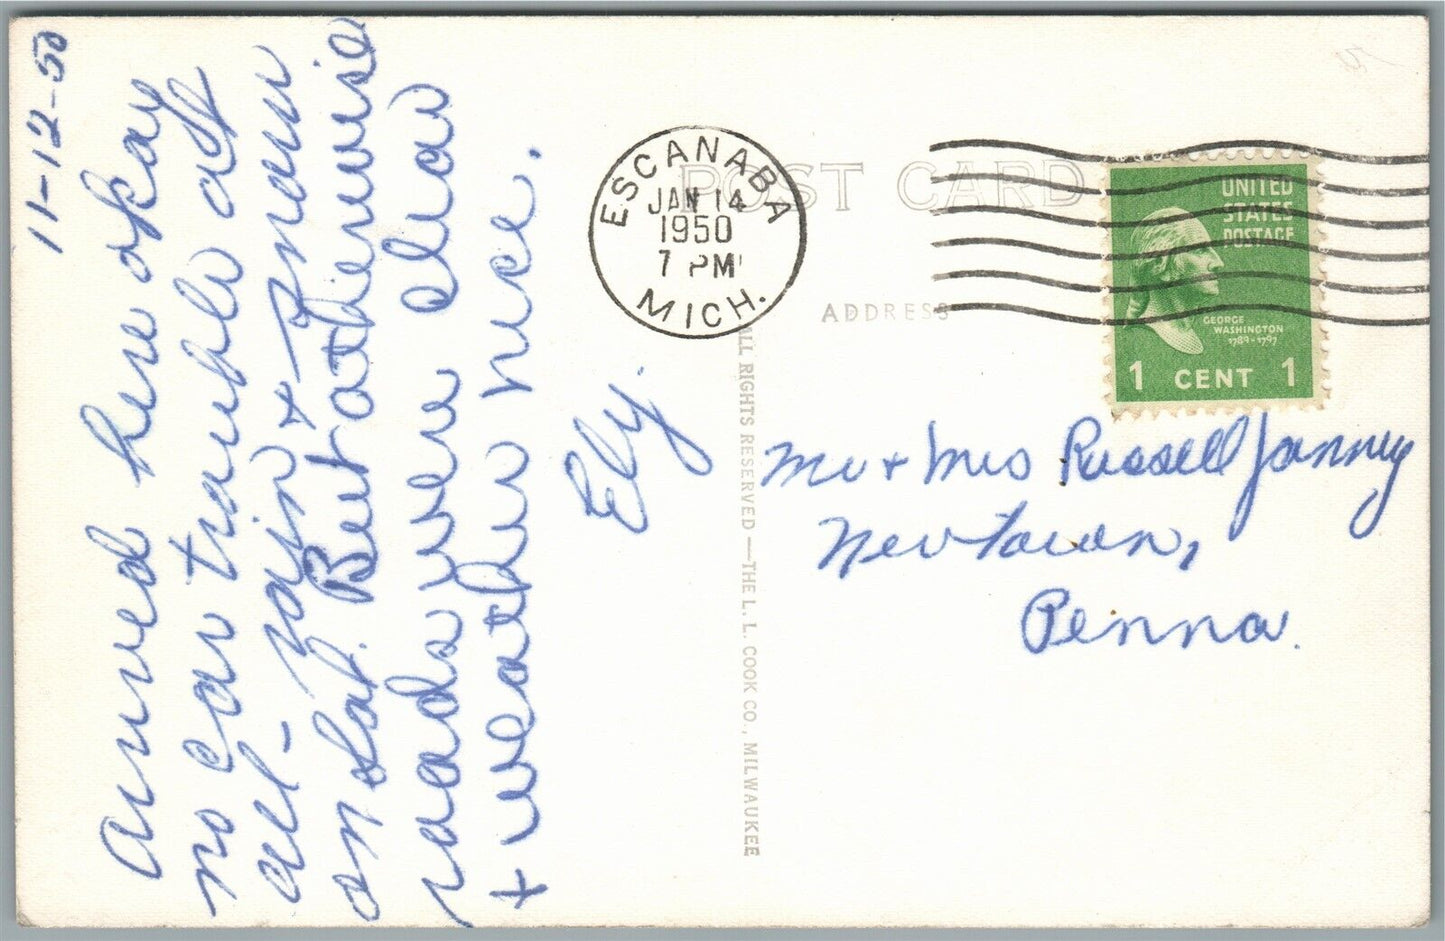 11-12-50
Arrived here okay
no car trouble at
all - rain & snow
on Sat. But otherwise
roads were clear
& weather nice.
Ely.
POST CARD
ESCANABA
JAN 14
1950
7 PM
MICH.
UNITED
STATES
POSTAGE
GEORGE
WASHINGTON
1789-1797
1 CENT 1
ADDRESS
ALL RIGHTS RESERVED — THE L. L. COOK CO., MILWAUKEE
Mr & Mrs Russell Janney
Newtown,
Penna.